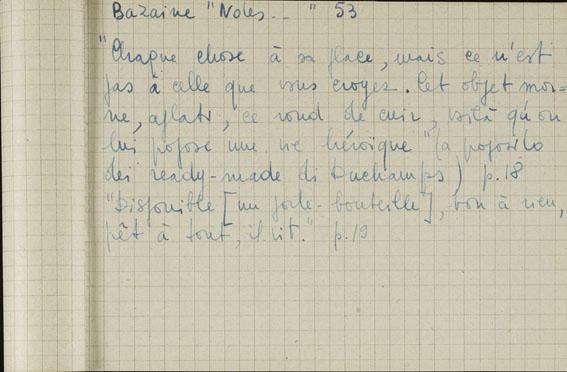 Bazaine "Notes.. " 53
"Chaque chose à sa place, mais ce n'est
pas à celle que vous croyez. Cet objet mor=
ne, aplati, ce rond de cuir, voilà qu'on
lui propose une vie héroïque" (a proposito
dei ready-made di Duchamps) p. 18
"Disponible [un porte-bouteille], bon à rien,
prêt à tout, il vit." p. 19